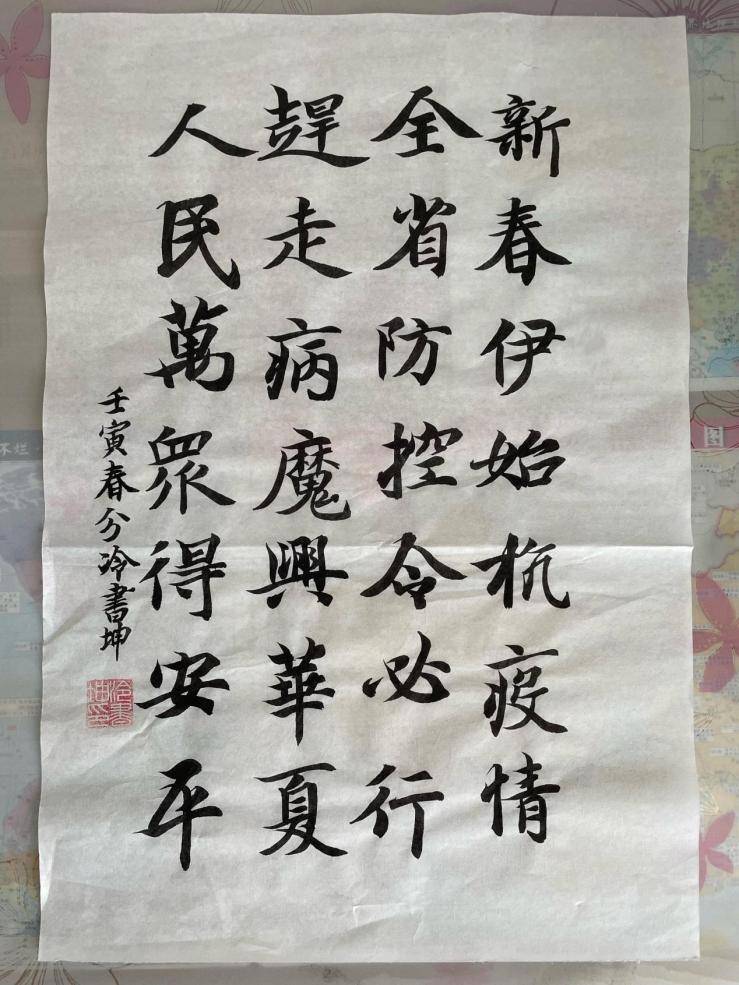 新春伊始抗疫情
全省防控令必行
趕走病魔興華夏
人民萬眾得安平
壬寅春分冷書坤
冷書坤印
不烂
图